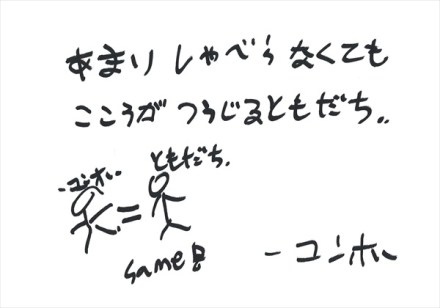 あまりしゃべらなくても
こころがつうじるともだち..
-ユンホ-
ともだち.
=
same!!
- ユンホ